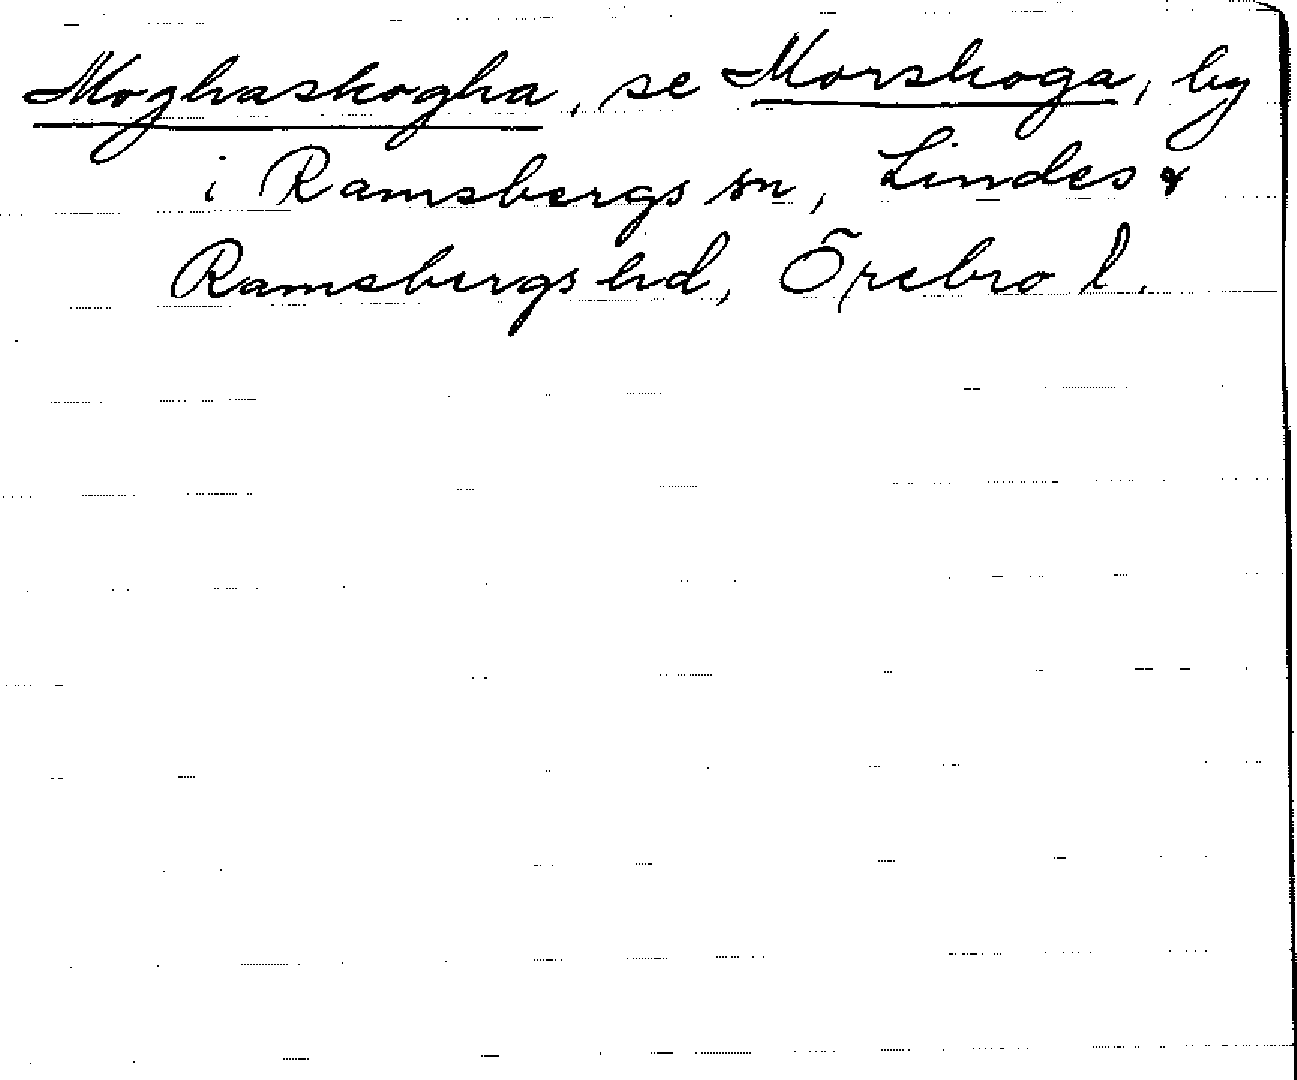 Moghaskogha, se Morskoga, by
i Ramsbergs sn, Lindes &
Ramsbergs hd, Örebro l.